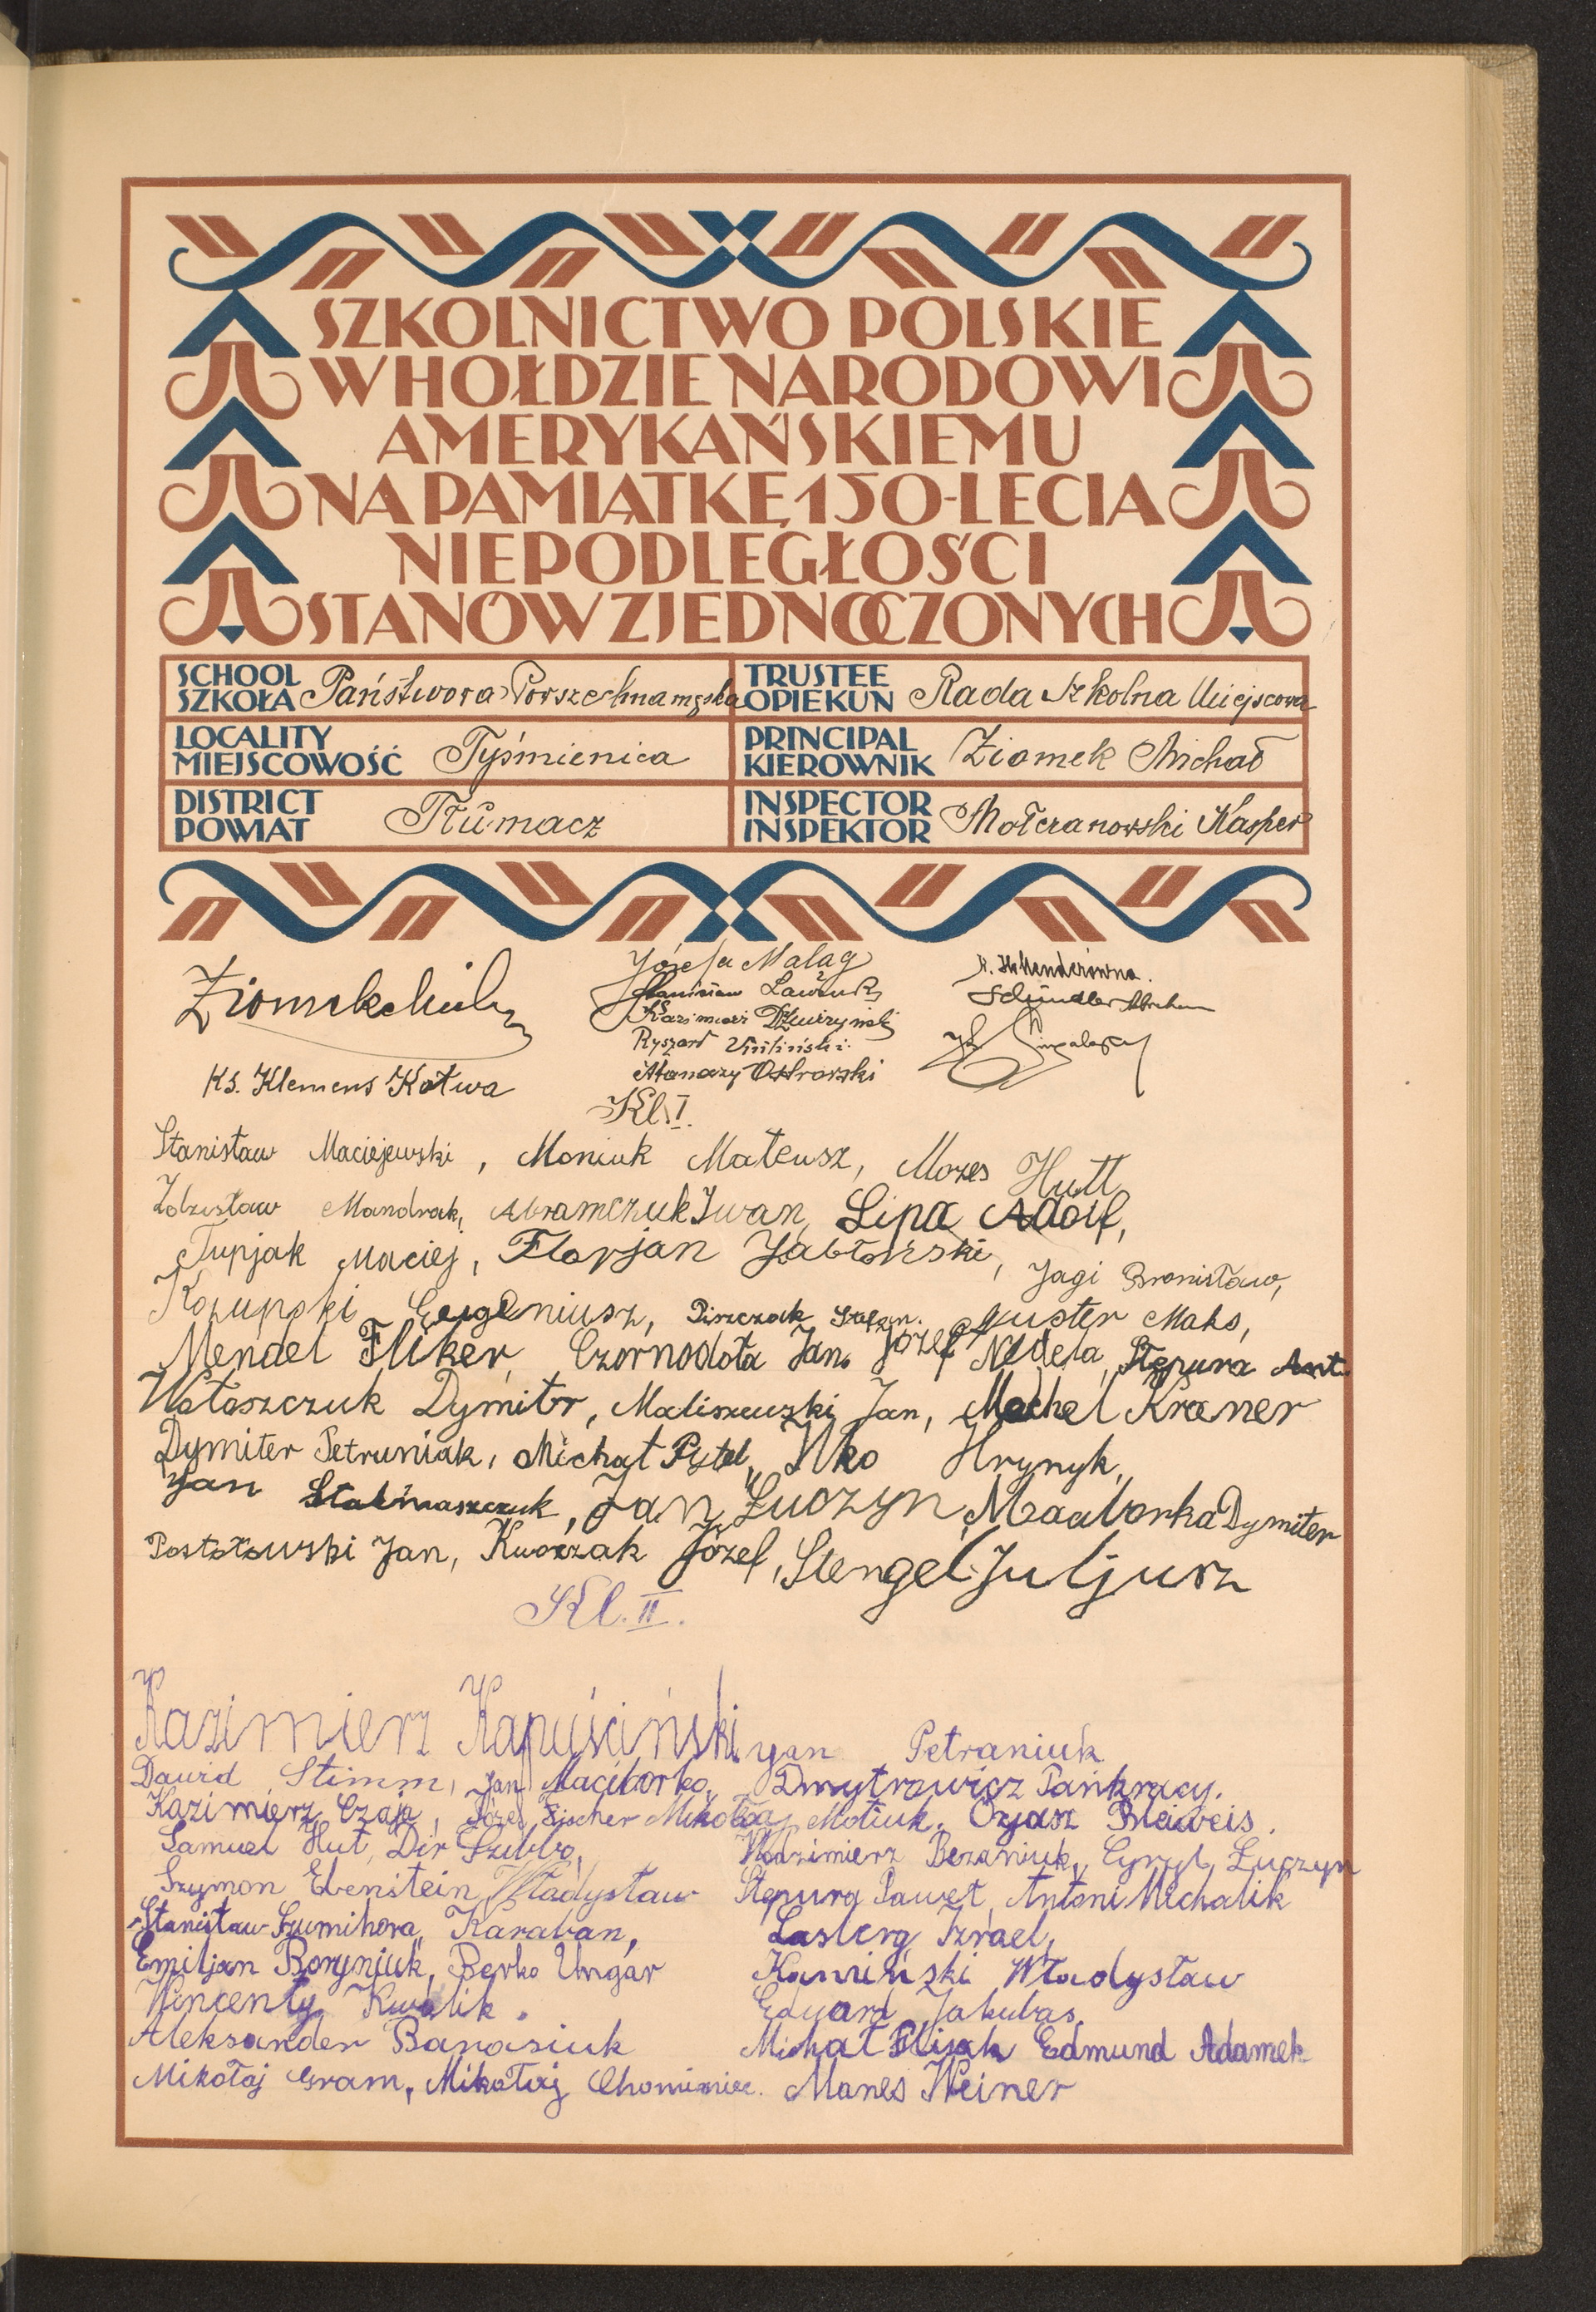 SZKOLNICTWO POLSKIE
W HOŁDZIE NARODOWI
AMERYKAŃSKIEMU
NA PAMIĄTKĘ 150-LECIA
NIEPODLEGŁOŚCI
STANÓW ZJEDNOCZONYCH
SCHOOL
SZKOŁA Państwowa Powszechna męska
TRUSTEE
OPIEKUN Rada Szkolna Miejscowa
LOCALITY
MIEJSCOWOŚĆ Tyśmienica
PRINCIPAL
KIEROWNIK Ziomek Michał
DISTRICT
POWIAT Tłumacz
INSPECTOR
INSPEKTOR Mołczanowski Kasper
Józefa Malag
Schindler Abraham
Ryszard
Atanazy Ostrowski
Ks. Klemens Kotwa
Kl. I.
Stanisław Maciejewski, Moniuk Mateusz, Mozes Hutt
Zdzisław Mandrak, Abramczuk Iwan, Lipa Adolf,
Tupjak Maciej, Florjan Jabłoński, Jagi Bronisław,
Kozupski Eugeniusz, Piszczak Stefan. Muster Maks,
Mendel Fliker, Czornodola Jan. Józef Nedela, Stępura Ant.
Wołoszczuk Dymitr, Maliszewski Jan, Mechel Kraner
Dymiter Petruniak, Michał Pytel, Ilko Hrynyk,
Jan, Jan Łuczyn, Dymiter
Jan, Kworzak Józef, Stengel Juljusz
Kl. II.
Kazimierz Kapuściński, Jan Petraniuk
Dawid Stimm, Jan Maciborko, Dmytrowicz Pankracy.
Kazimierz Czaja, Józef Fischer Mikołaj Motiuk. Ozjasz Blaweis.
Samuel Hut, Dir Szubbo, Włodzimierz Bezaniuk, Cyryl Łuczyn
Szymon Ebenstein, Władysław Stępura Paweł, Antoni Michalik
Stanisław Szumihora, Karaban, Lasberg Izrael,
Emiljan Boryniuk, Berko Ungar Kamiński Władysław
Wincenty Kwalik. Edward Jakubas,
Aleksander Banasiuk Michał Flijak Edmund Adamek
Mikołaj Gram, Mikołaj Manes Weiner